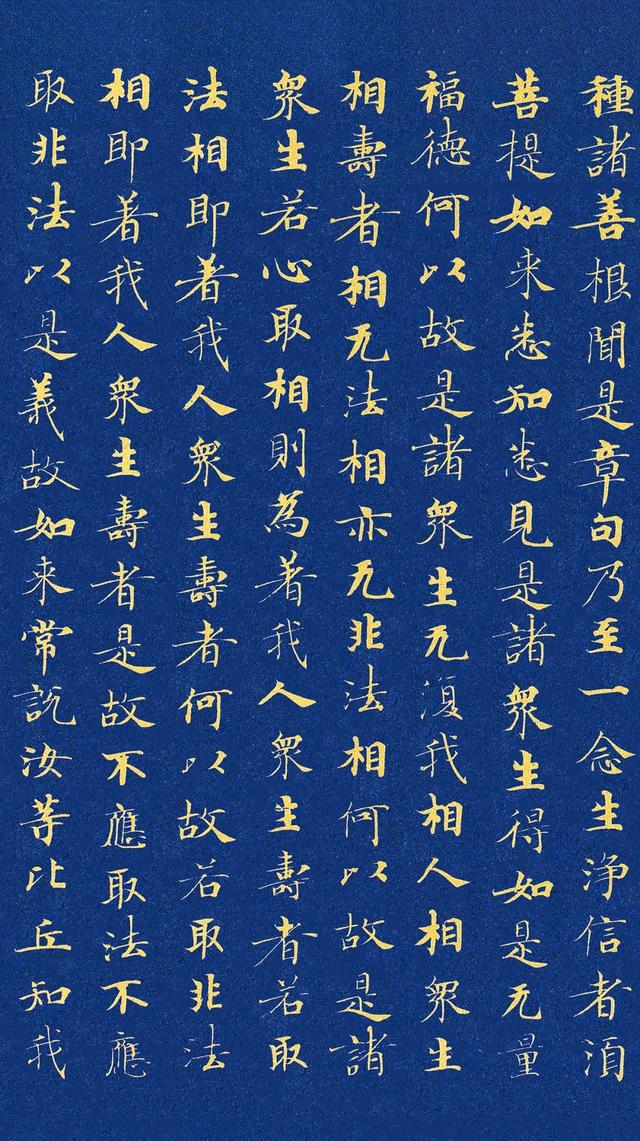 種諸善根聞是章句乃至一念生淨信者須
菩提如来悉知悉見是諸衆生得如是无量
福德何以故是諸衆生无復我相人相衆生
相壽者相无法相亦无非法相何以故是諸
衆生若心取相則為著我人衆生壽者若取
法相即著我人衆生壽者何以故若取非法
相即著我人衆生壽者是故不應取法不應
取非法以是義故如来常説汝等比丘知我